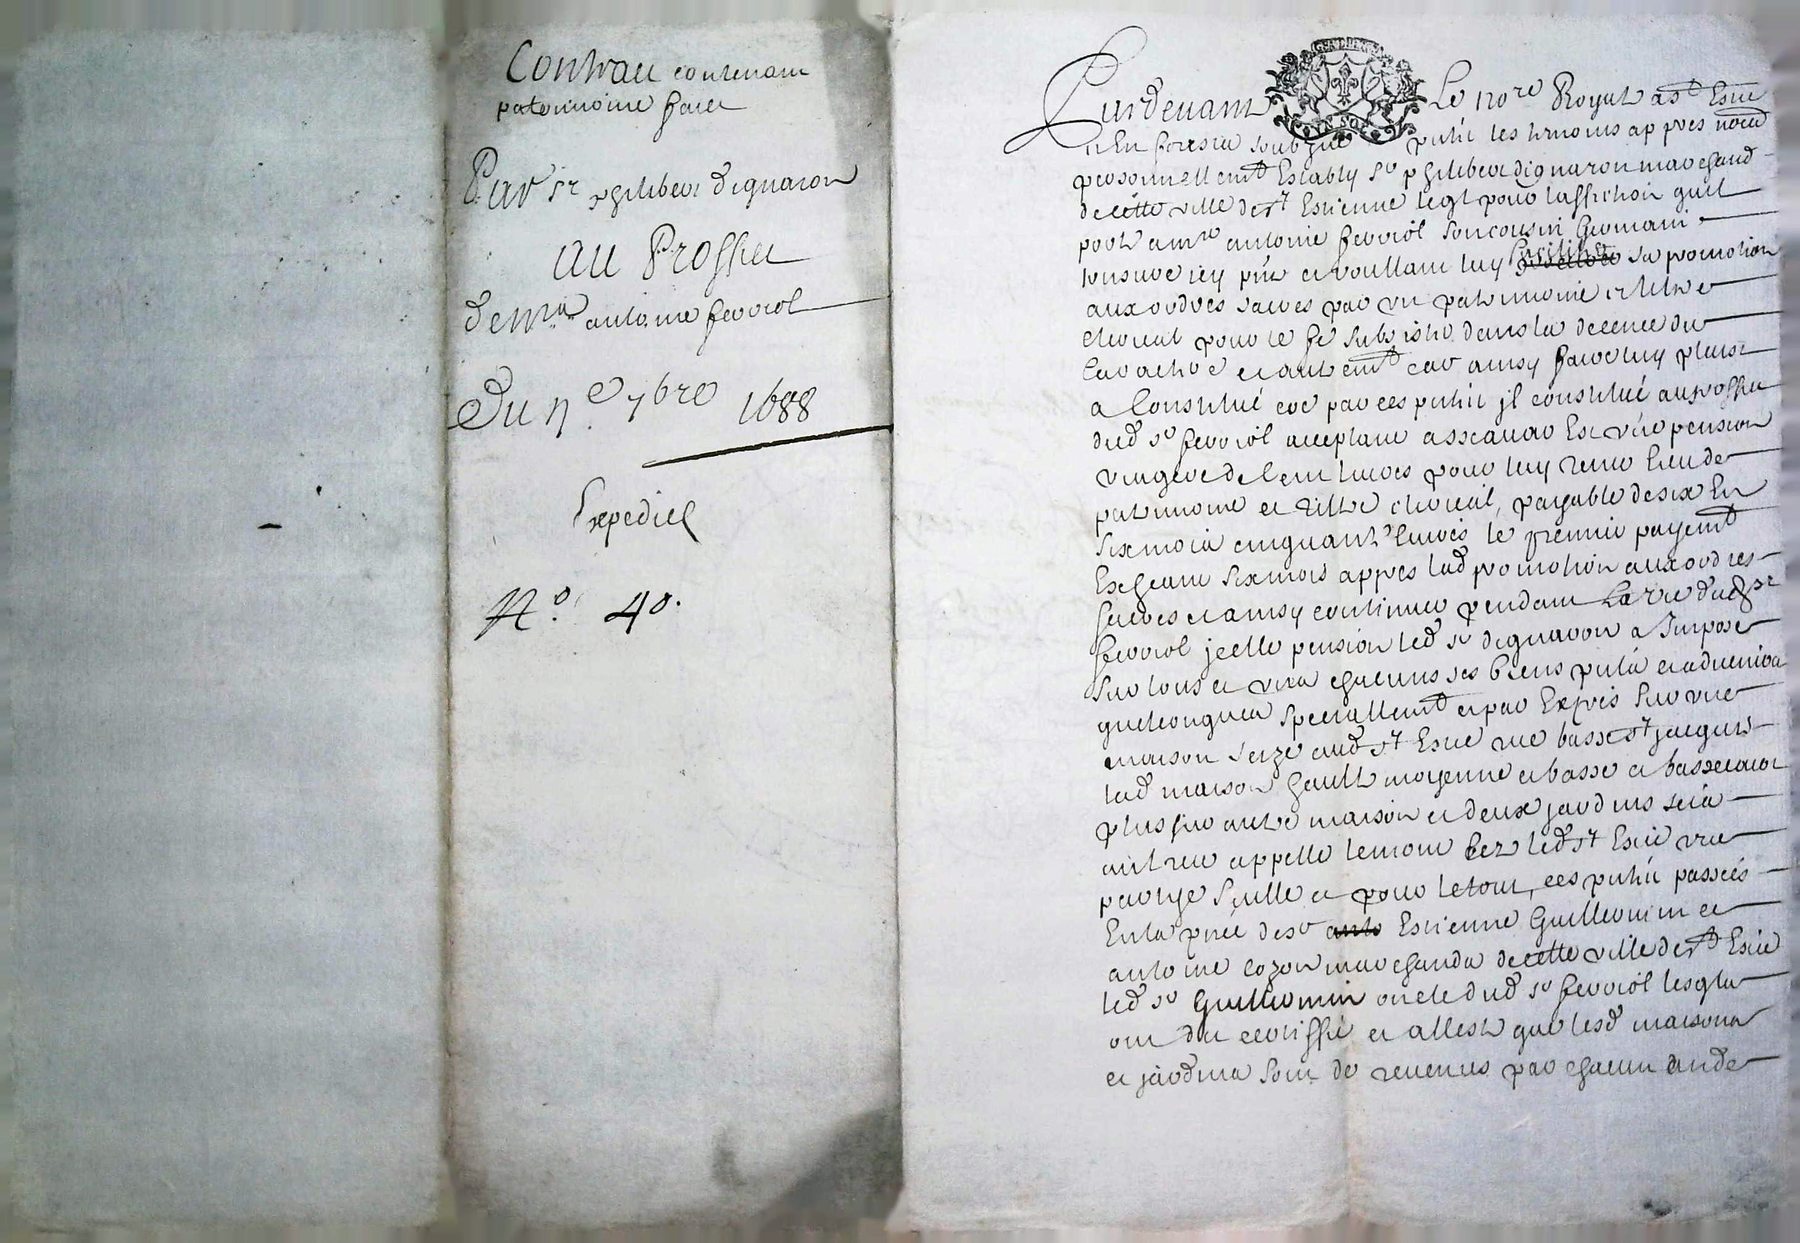 Contract contenant
patrimoine faict
Par sr philibert dignaron
au Proffict
de mre antoine ferriol
Du 11e 7bre 1688
Expedié
No. 40.
Pardevant Le nore Royal a st Esne
en forests soubzné pnt les tesmoins appres només
personnellemt Estably sr philibert dignaron marchand
de cette ville de st Estienne leql pour laffection quil
porte a mre antoine ferriol son cousin Germain
icy pnt et voullant luy faciliter sa promotion
aux ordres sacres par un patrimoine et tiltre
clerical pour le fe subsister dans la decence du
caractere et autremt car ainsy faire luy plaist
a Constitué coe par ces pntes jl constitue au proffict
dud sr ferriol acceptant assavoir Est une pension
viagere de Cent livres pour luy tenir lieu de
patrimoine et tiltre clerical, payable de six En
six mois cinquante livres le premier payemt
Escheant six mois appres lad promotion aux ordres
sacres et ainsy continuer pendant La vie dud sr
ferriol jcelle pension led sr dignaron a Imposé
sur tous et uns chacuns ses biens pnts et advenir
quelconques speciallemt et par Expres sur une
maison size aud st Esne rue basse st jacques
lad maison haulte moyenne et basse et bassecourt
plus sur autre maison et deux jardins scis
au lieu appellé le mont led st Esne rue
et pour le tout, ces pntes passées
En la pnce de sr Estienne Guilleomin et
antoine cozon marchands de cette ville de st Esne
led sr Guilleomin oncle dud sr ferriol lesqls
ont du certiffié et attesté que lesd maisons
et jardins sont de revenus par chacun an de